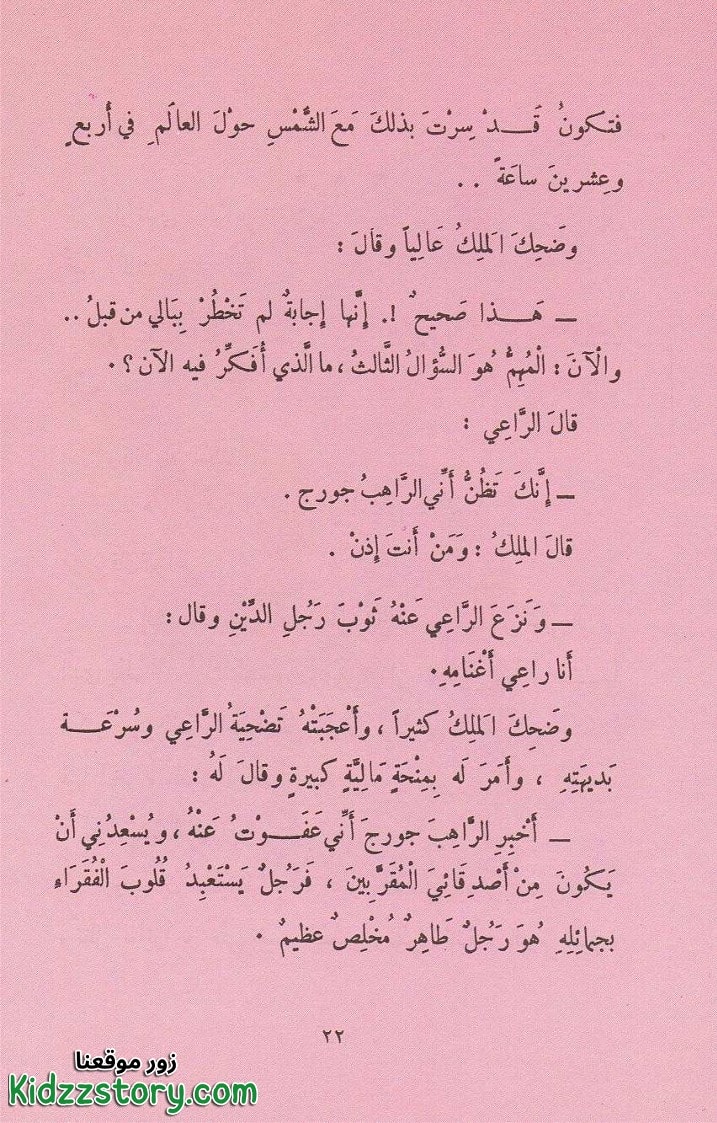 فتكونُ قَـــدْ سِرْتَ بذلكَ مَعَ الشَّمْسِ حوْلَ العالَمِ في أربعٍ
وعِشرينَ ساعَةً . .
وضَحِكَ المَلِكُ عَالِياً وقالَ :
ــ هَـــذا صَحيحٌ !. إنَّها إجابةٌ لم تَخْطُرْ بِبَالي من قبلُ ..
والْآنَ : الْمُهِمُّ هُوَ السُّؤالُ الثَّالثُ ، ما الَّذي أُفَكِّرُ فيه الآن ؟ .
قالَ الرَّاعِي :
ــ إنَّكَ تَظُنُّ أَنِّي الرَّاهِبُ جورج .
قالَ الملِكُ : وَمَنْ أَنتَ إذنْ .
ــ وَنَزَعَ الرَّاعِي عَنْهُ ثوْبَ رَجُلِ الدِّيْنِ وقال :
أنا راعِي أَغْنَامِهِ .
وضَحِكَ المَلِكُ كثيراً ، وأَعْجَبَتْهُ تَضْحِيَةُ الرَّاعِي وسُرْعَـــة
بَديهَتِهِ ، وأَمَرَ له بِمِنْحَةٍ مَالِيَّةٍ كبيرةٍ وقالَ لَهُ :
ــ أَخْبِرِ الرَّاهِبَ جورجَ أَنِّي عَفَـــوْتُ عَنْهُ ، ويُسْعِدُنِي أَنْ
يَكُونَ مِنْ أَصْدِقَائِيَ المُقَرَّبِينَ ، فَرَجُلٌ يَسْتَعْبِدُ قُلُوبَ الْفُقَرَاءِ
بجمائِلِهِ هُوَ رَجُلٌ طَاهِرٌ مُخْلِصٌ عظيمٌ .
٢٢
زور موقعنا
Kidzzstory.com